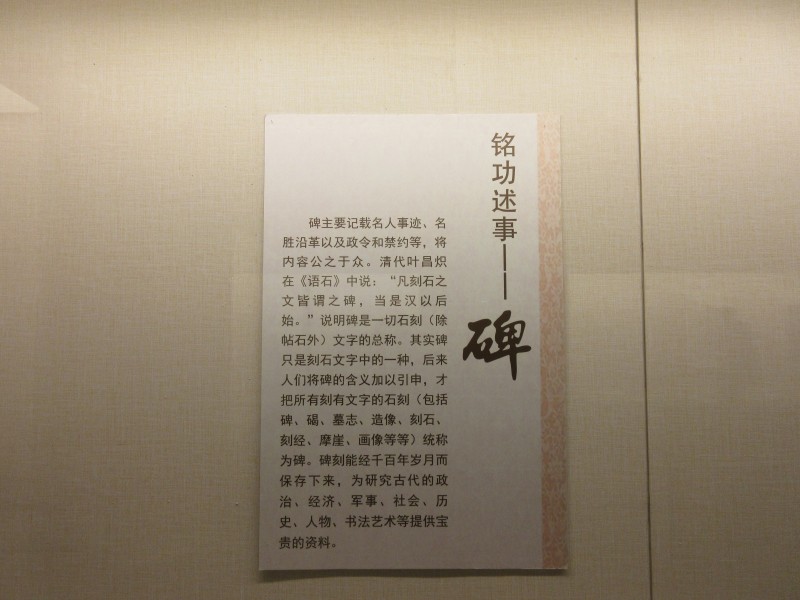 铭功述事——碑
碑主要记载名人事迹、名
胜沿革以及政令和禁约等，将
内容公之于众。清代叶昌炽
在《语石》中说：“凡刻石之
文皆谓之碑，当是汉以后
始。”说明碑是一切石刻（除
帖石外）文字的总称。其实碑
只是刻石文字中的一种，后来
人们将碑的含义加以引申，才
把所有刻有文字的石刻（包括
碑、碣、墓志、造像、刻石、
刻经、摩崖、画像等等）统称
为碑。碑刻能经千百年岁月而
保存下来，为研究古代的政
治、经济、军事、社会、历
史、人物、书法艺术等提供宝
贵的资料。